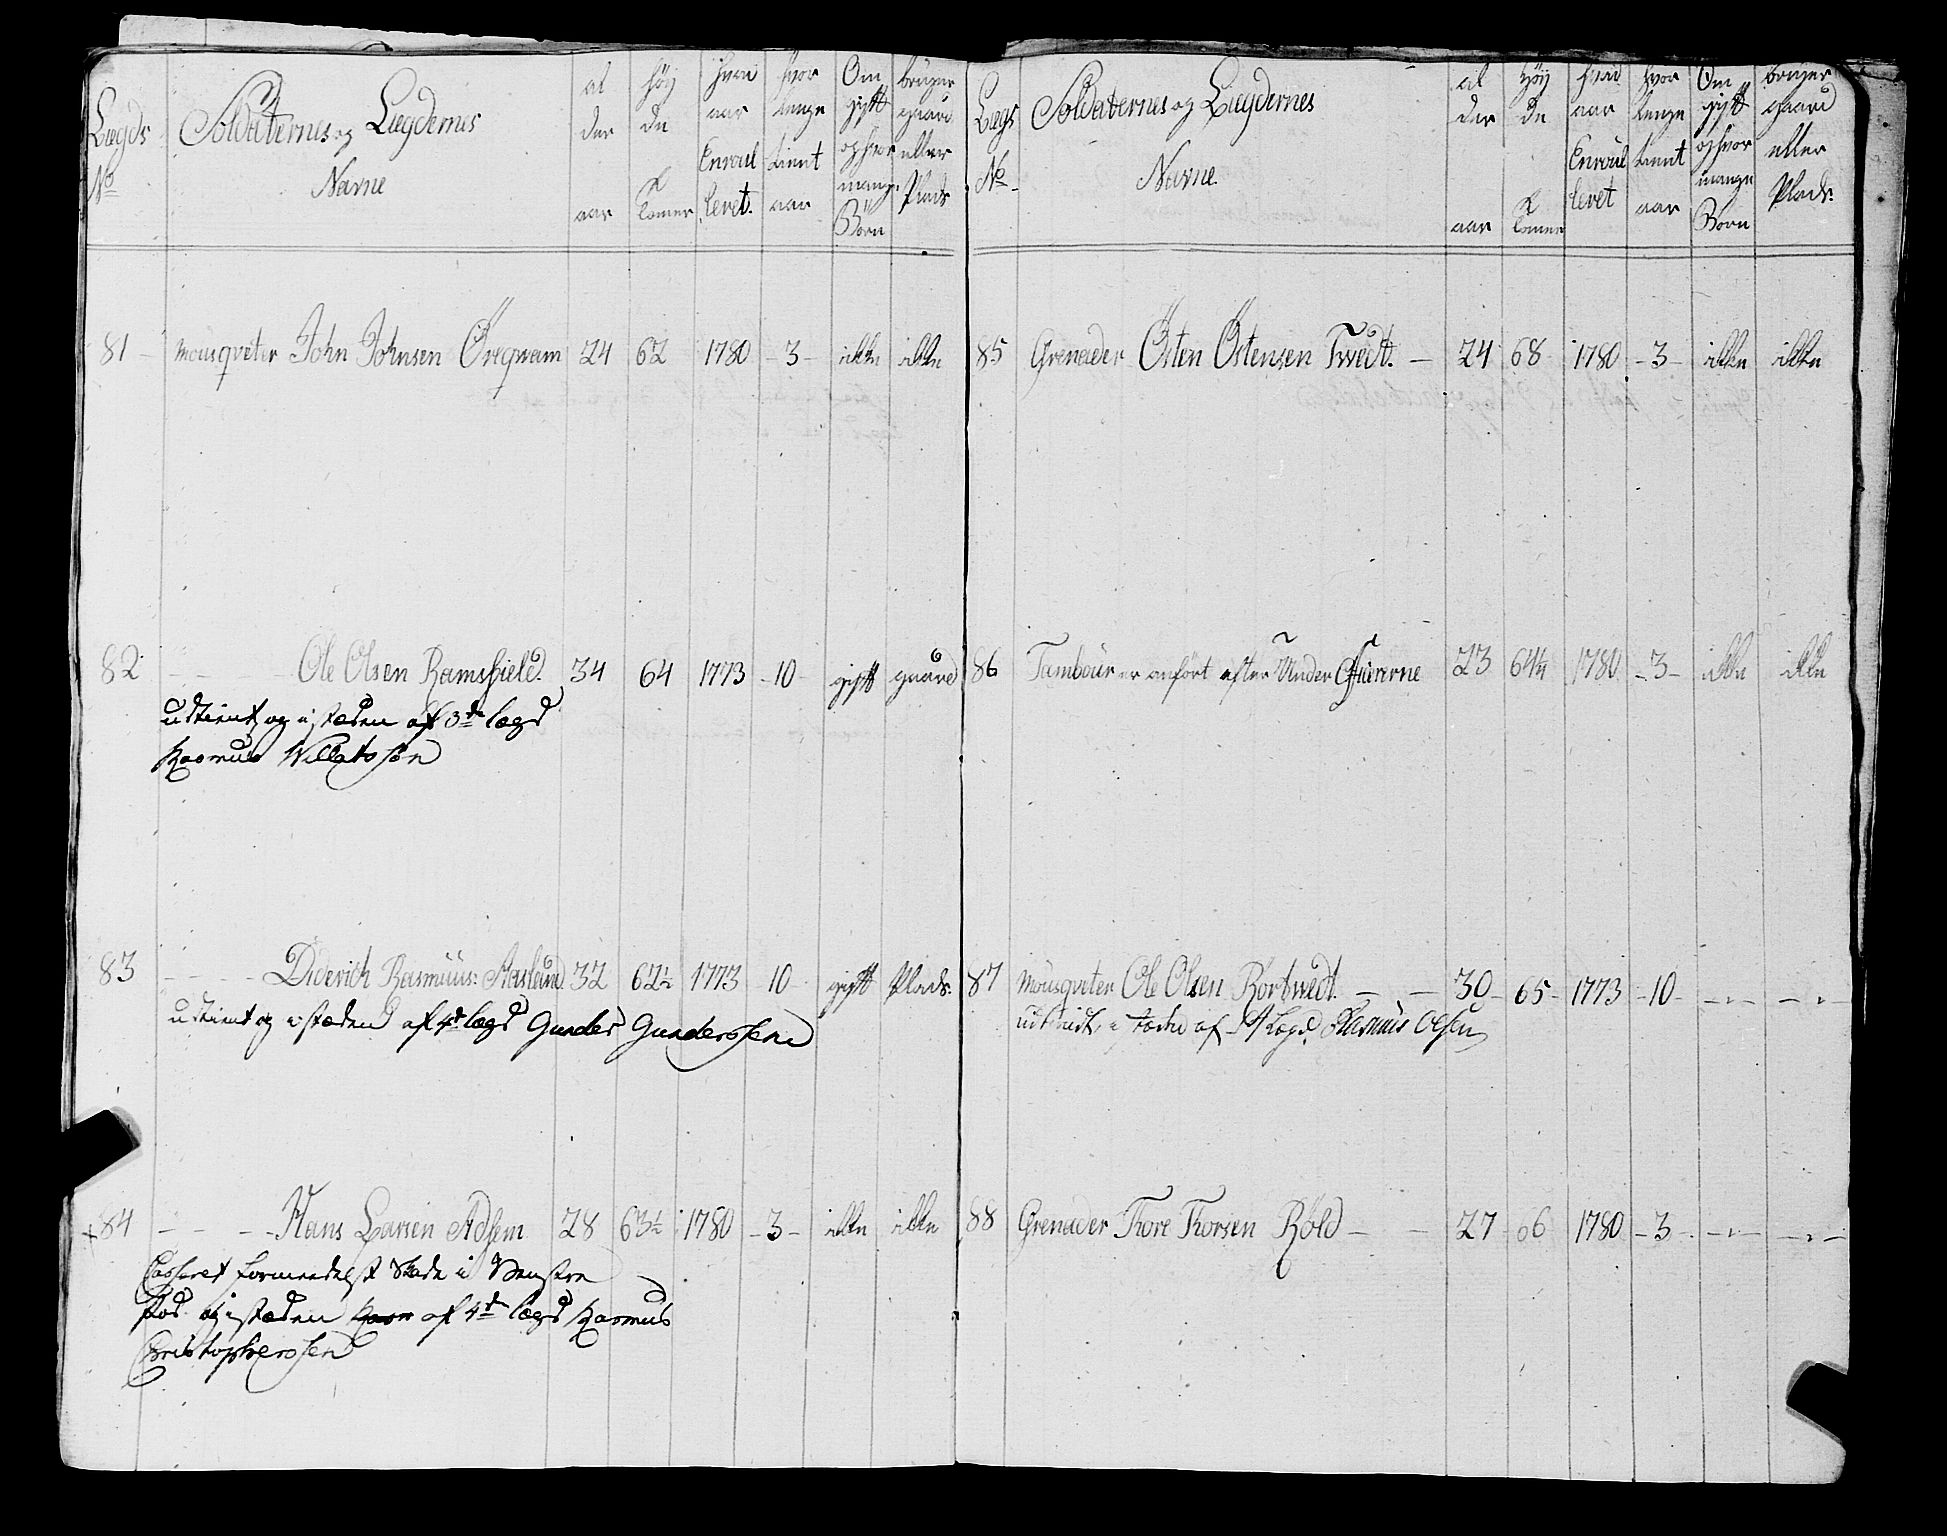 Lægds No Soldaternes og Lægdernes Navne al der aar höy de komer hvad aar Enroul levet. hvor lenge tient aar Om gift og hvor mange Börn bruger gaard eller Plads
81 Mousqveter John Johnsen Öregvam 24 62 1780 - 3 - ikke ikke
82 - - Ole Olsen Ramsfield. 34 64 1773 - 10 - gift gaard
udtient og i stæden af 3de lægd
Rasmus Willatssön
83 - - - Diderich Rasmuus: Aaslund 32 62½ 1773 10 gift Plads.
udtient og i stæden af 4de lægd Gunder Gunderssen
84 - - - Hans Larsen Adsem 28 63½ 1780 - 3 - ikke ikke
Casseret formeedelst Skade i Venstre
fod og i stæden af 4de lægd Rasmus
Christopherssen
Lægs No Soldaternes og Lægdernes Navne. al der aar höy de komer hvad aar Enroul levet hvor lenge tient aar Om gift og hvor mange Börn bruger gaard eller Plads.
85 Grenader Östen Östensen Twedt. - 24 68 1780 - 3 - ikke ikke
86 Tambour er anfört efter Under Officererne 23 64¼ 1780 - 3 - ikke ikke
87 Mousqveter Ole Olsen Rörtwedt. - - 30 - 65 - 1773 - 10 - - " - - " -
udtient, i stæden af Lægd Rasmus Olsen
88 Grenader Tore Torsen Röld - - 27 66 1780 - 3 - - " - - " -